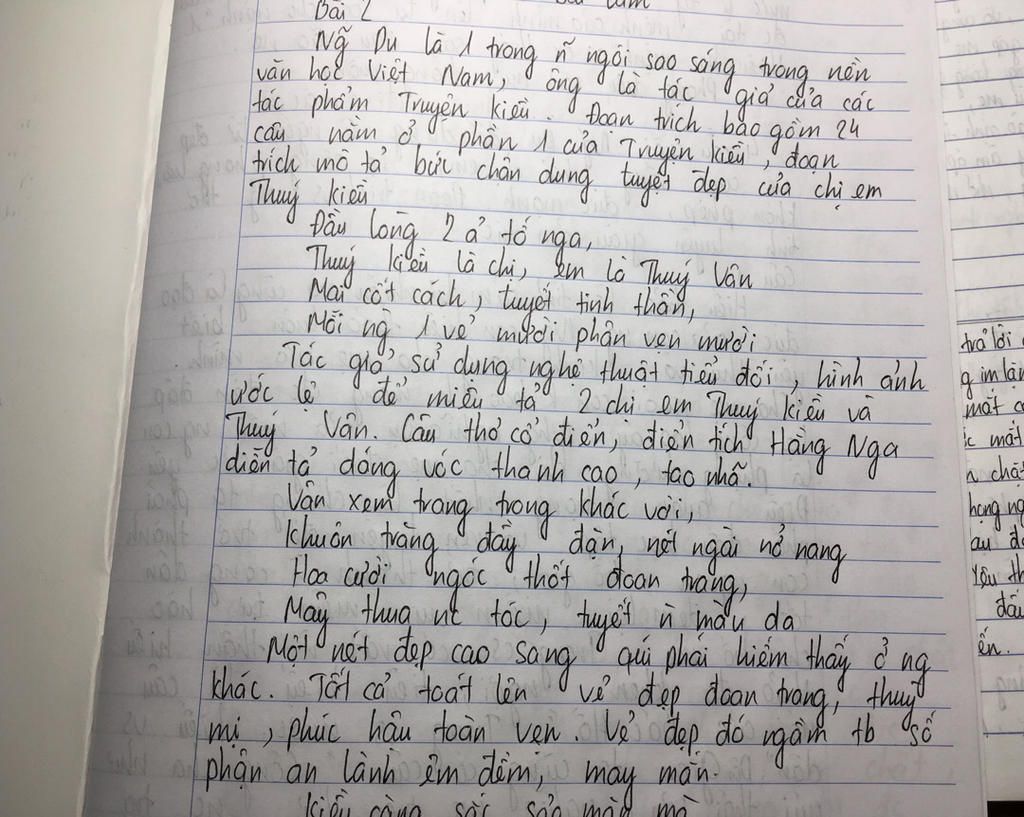 Bài 2
Ng~ Du là 1 trong ~n ngôi sao sáng trong nền
văn học Việt Nam, ông là tác giả của các
tác phẩm Truyện kiều. Đoạn trích bao gồm 24
câu nằm ở phần 1 của Truyện kiều, đoạn
trích mô tả bức chân dung tuyệt đẹp của chị em
Thuý kiều
Đầu lòng 2 ả tố nga,
Thuý kiều là chị, em là Thuý Vân
Mai cốt cách, tuyết tinh thần,
Mỗi ng 1 vẻ mười phân vẹn mười
Tác giả sử dụng nghệ thuật tiểu đối, hình ảnh
ước lệ để miêu tả 2 chị em Thuý kiều và
Thuý Vân. Câu thơ cổ điển, điển tích Hằng Nga
diễn tả dáng vóc thanh cao, tao nhã.
Vân xem trang trọng khác vời,
khuôn trăng đầy đặn, nét ngài nở nang
Hoa cười ngọc thốt đoan trang,
Mây thua nc tóc, tuyết ~n màu da
Một nét đẹp cao sang quí phái hiếm thấy ở ng
khác. Tất cả toát lên vẻ đẹp đoan trang, thuỳ
mị, phúc hậu toàn vẹn. Vẻ đẹp đó ngầm tb số
phận an lành êm đềm, may mắn.
kiều càng sắc sảo mặn mà
trả lời